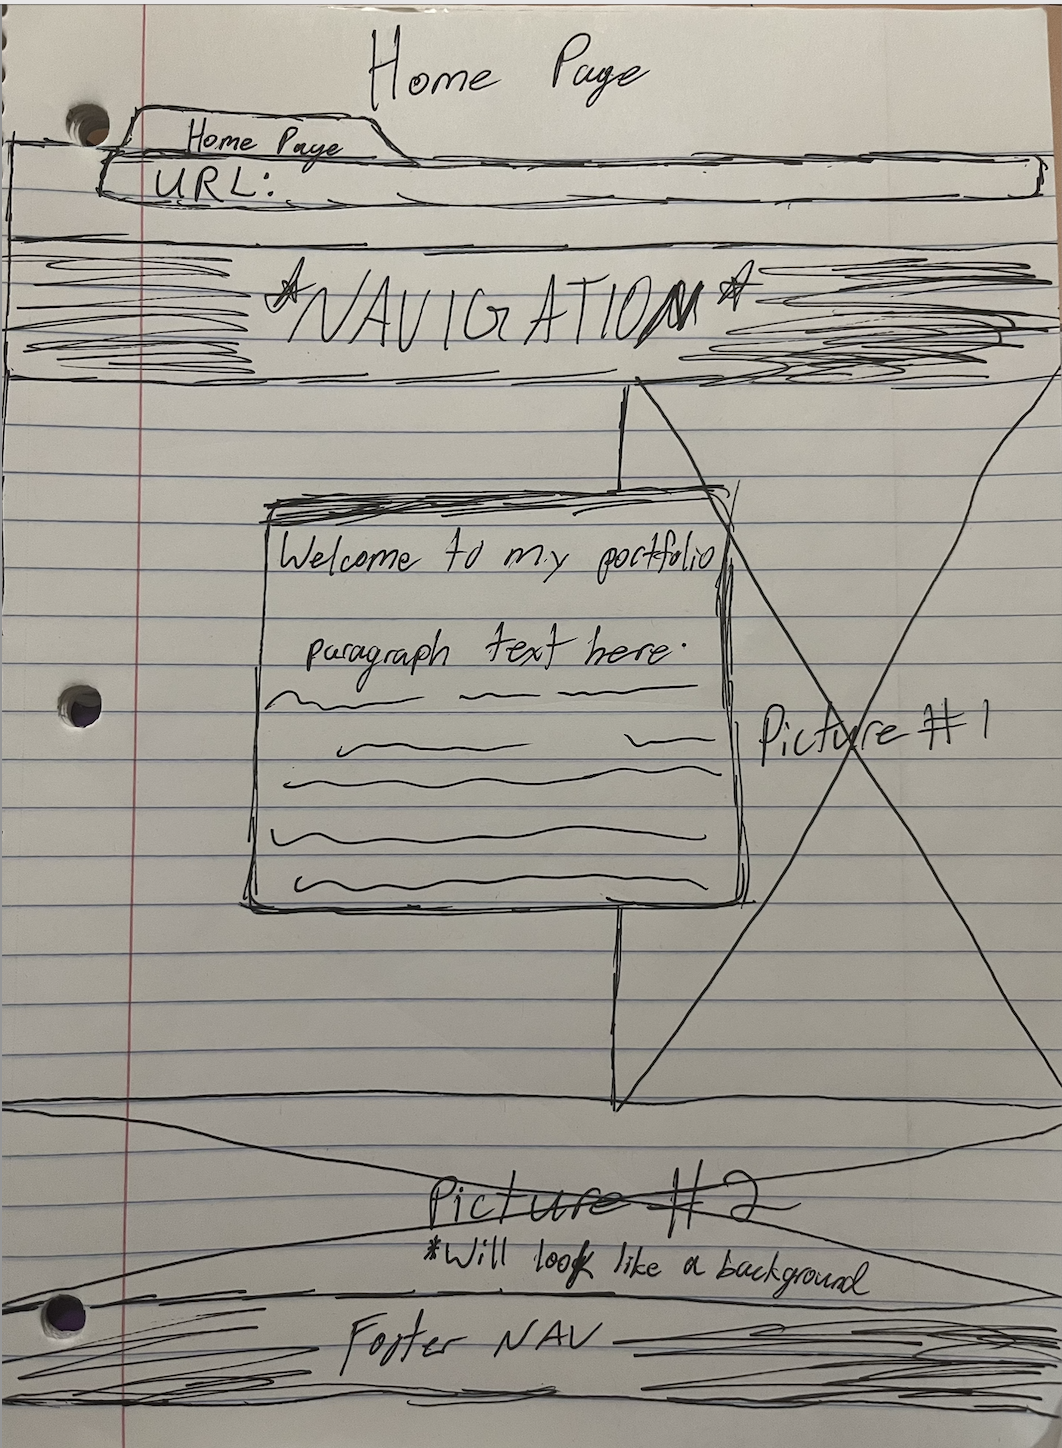 Home Page
Home Page
URL:
*NAVIGATION*
Welcome to my portfolio
paragraph text here.
Picture #1
Picture #2
*Will look like a background
Footer NAV